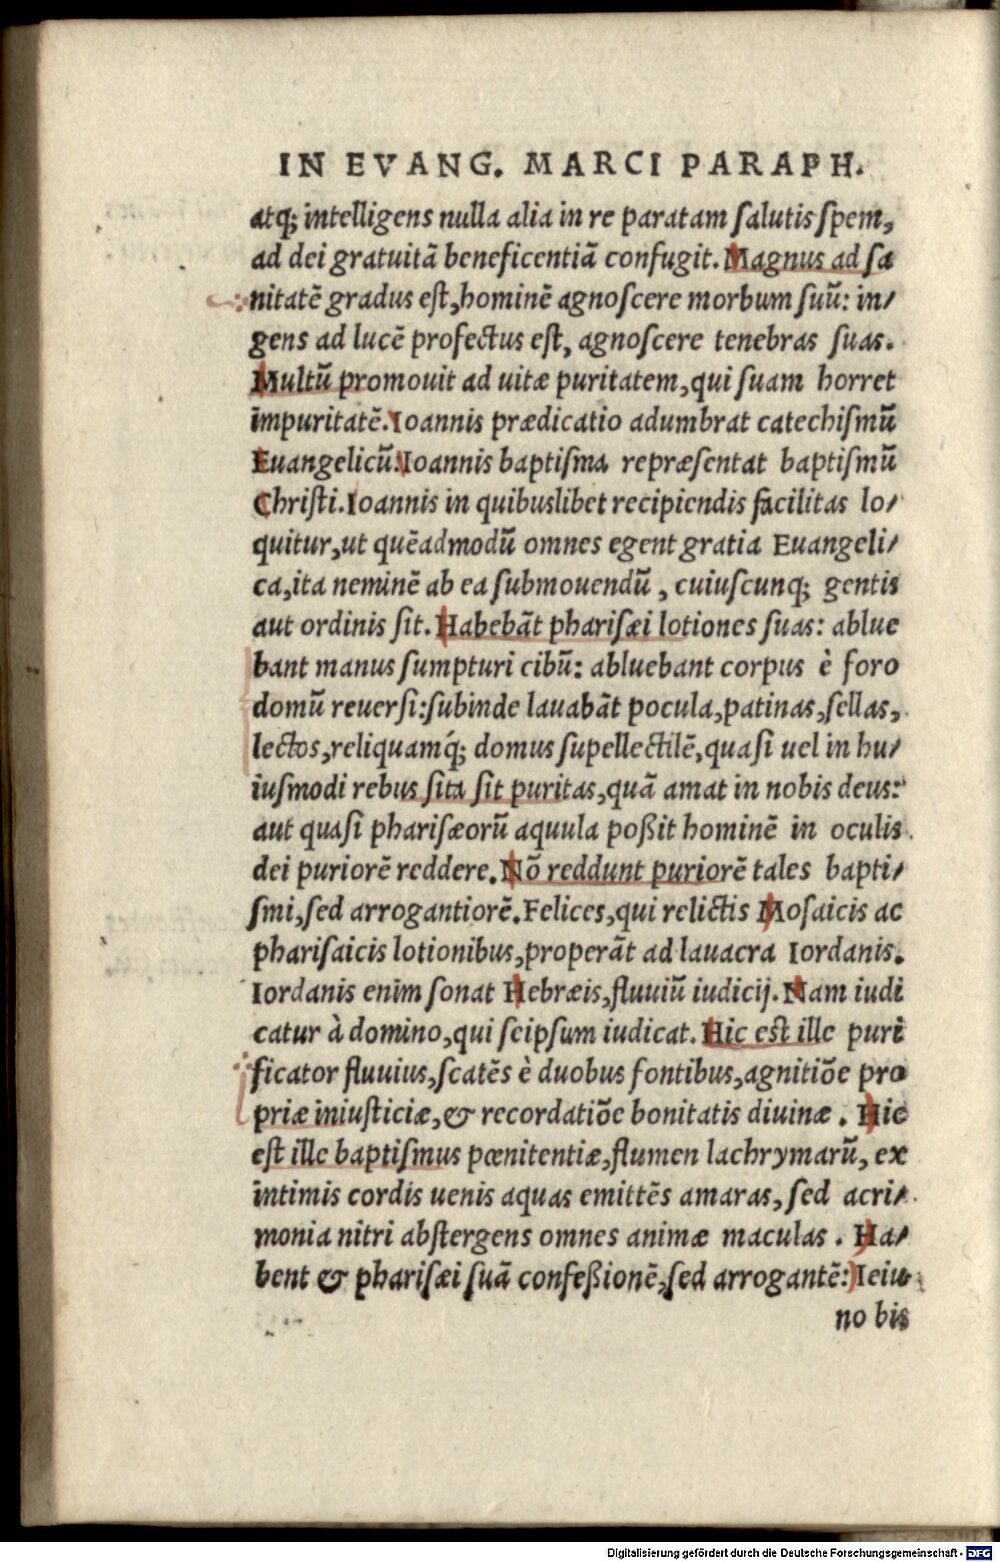 IN EVANG. MARCI PARAPH.
atq; intelligens nulla alia in re paratam ſalutis ſpem,
ad dei gratuitã beneficentiã confugit. Magnus ad ſa
nitatẽ gradus eſt, hominẽ agnoſcere morbum ſuũ: in/
gens ad lucẽ profectus eſt, agnoſcere tenebras ſuas.
Multũ promouit ad uitæ puritatem, qui ſuam horret
impuritatẽ. Ioannis prædicatio adumbrat catechiſmũ
Euangelicũ: Ioannis baptiſma repræſentat baptiſmũ
Chriſti. Ioannis in quibuslibet recipiendis facilitas lo/
quitur, ut quẽadmodũ omnes egent gratia Euangeli/
ca, ita neminẽ ab ea ſubmouendũ, cuiuſcunq; gentis
aut ordinis ſit. Habebãt phariſæi lotiones ſuas: ablue
bant manus ſumpturi cibũ: abluebant corpus è foro
domũ reuerſi: ſubinde lauabãt pocula, patinas, ſellas,
lectos, reliquamq́; domus ſupellectilẽ, quaſi uel in hu/
iuſmodi rebus ſita ſit puritas, quã amat in nobis deus:
aut quaſi phariſæorũ aquula poßit hominẽ in oculis
dei puriorẽ reddere. Nõ reddunt puriorẽ tales bapti/
ſmi, ſed arrogantiorẽ. Felices, qui relictis Moſaicis ac
phariſaicis lotionibus, properãt ad lauacra Iordanis.
Iordanis enim ſonat Hebræis, fluuiũ iudicij. Nam iudi
catur à domino, qui ſeipſum iudicat. Hic eſt ille puri
ficator fluuius, ſcatẽs è duobus fontibus, agnitiõe pro
priæ iniuſticiæ, & recordatiõe bonitatis diuinæ. Hic
eſt ille baptiſmus pœnitentiæ, flumen lachrymarũ, ex
intimis cordis uenis aquas emittẽs amaras, ſed acri/
monia nitri abſtergens omnes animæ maculas. Ha/
bent & phariſæi ſuã confeßionẽ, ſed arrogantẽ: Ieiu
no bis
Digitalisierung gefördert durch die Deutsche Forschungsgemeinschaft - DFG